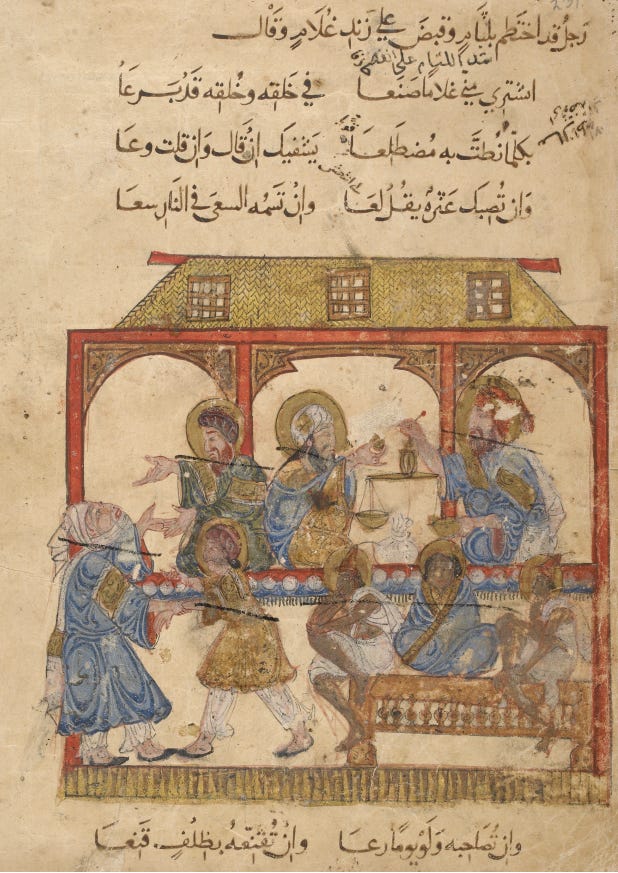 رجلٌ قد اختطم بلثامٍ وقبض على زندِ غلامٍ وقال
اشتري مني غلاما صنعا في خلقه وخُلقه قد برعا
بكلما نُطتَ به مضطلعا يشفيك ان قال وان قلت وعا
وان تُصبك عثرةٌ يقُل لعا وان تسمه السعى في النار سعا
وان تصاحبه ولو يومًا رعا وان تُقنعهُ بظلفٍ قنعا